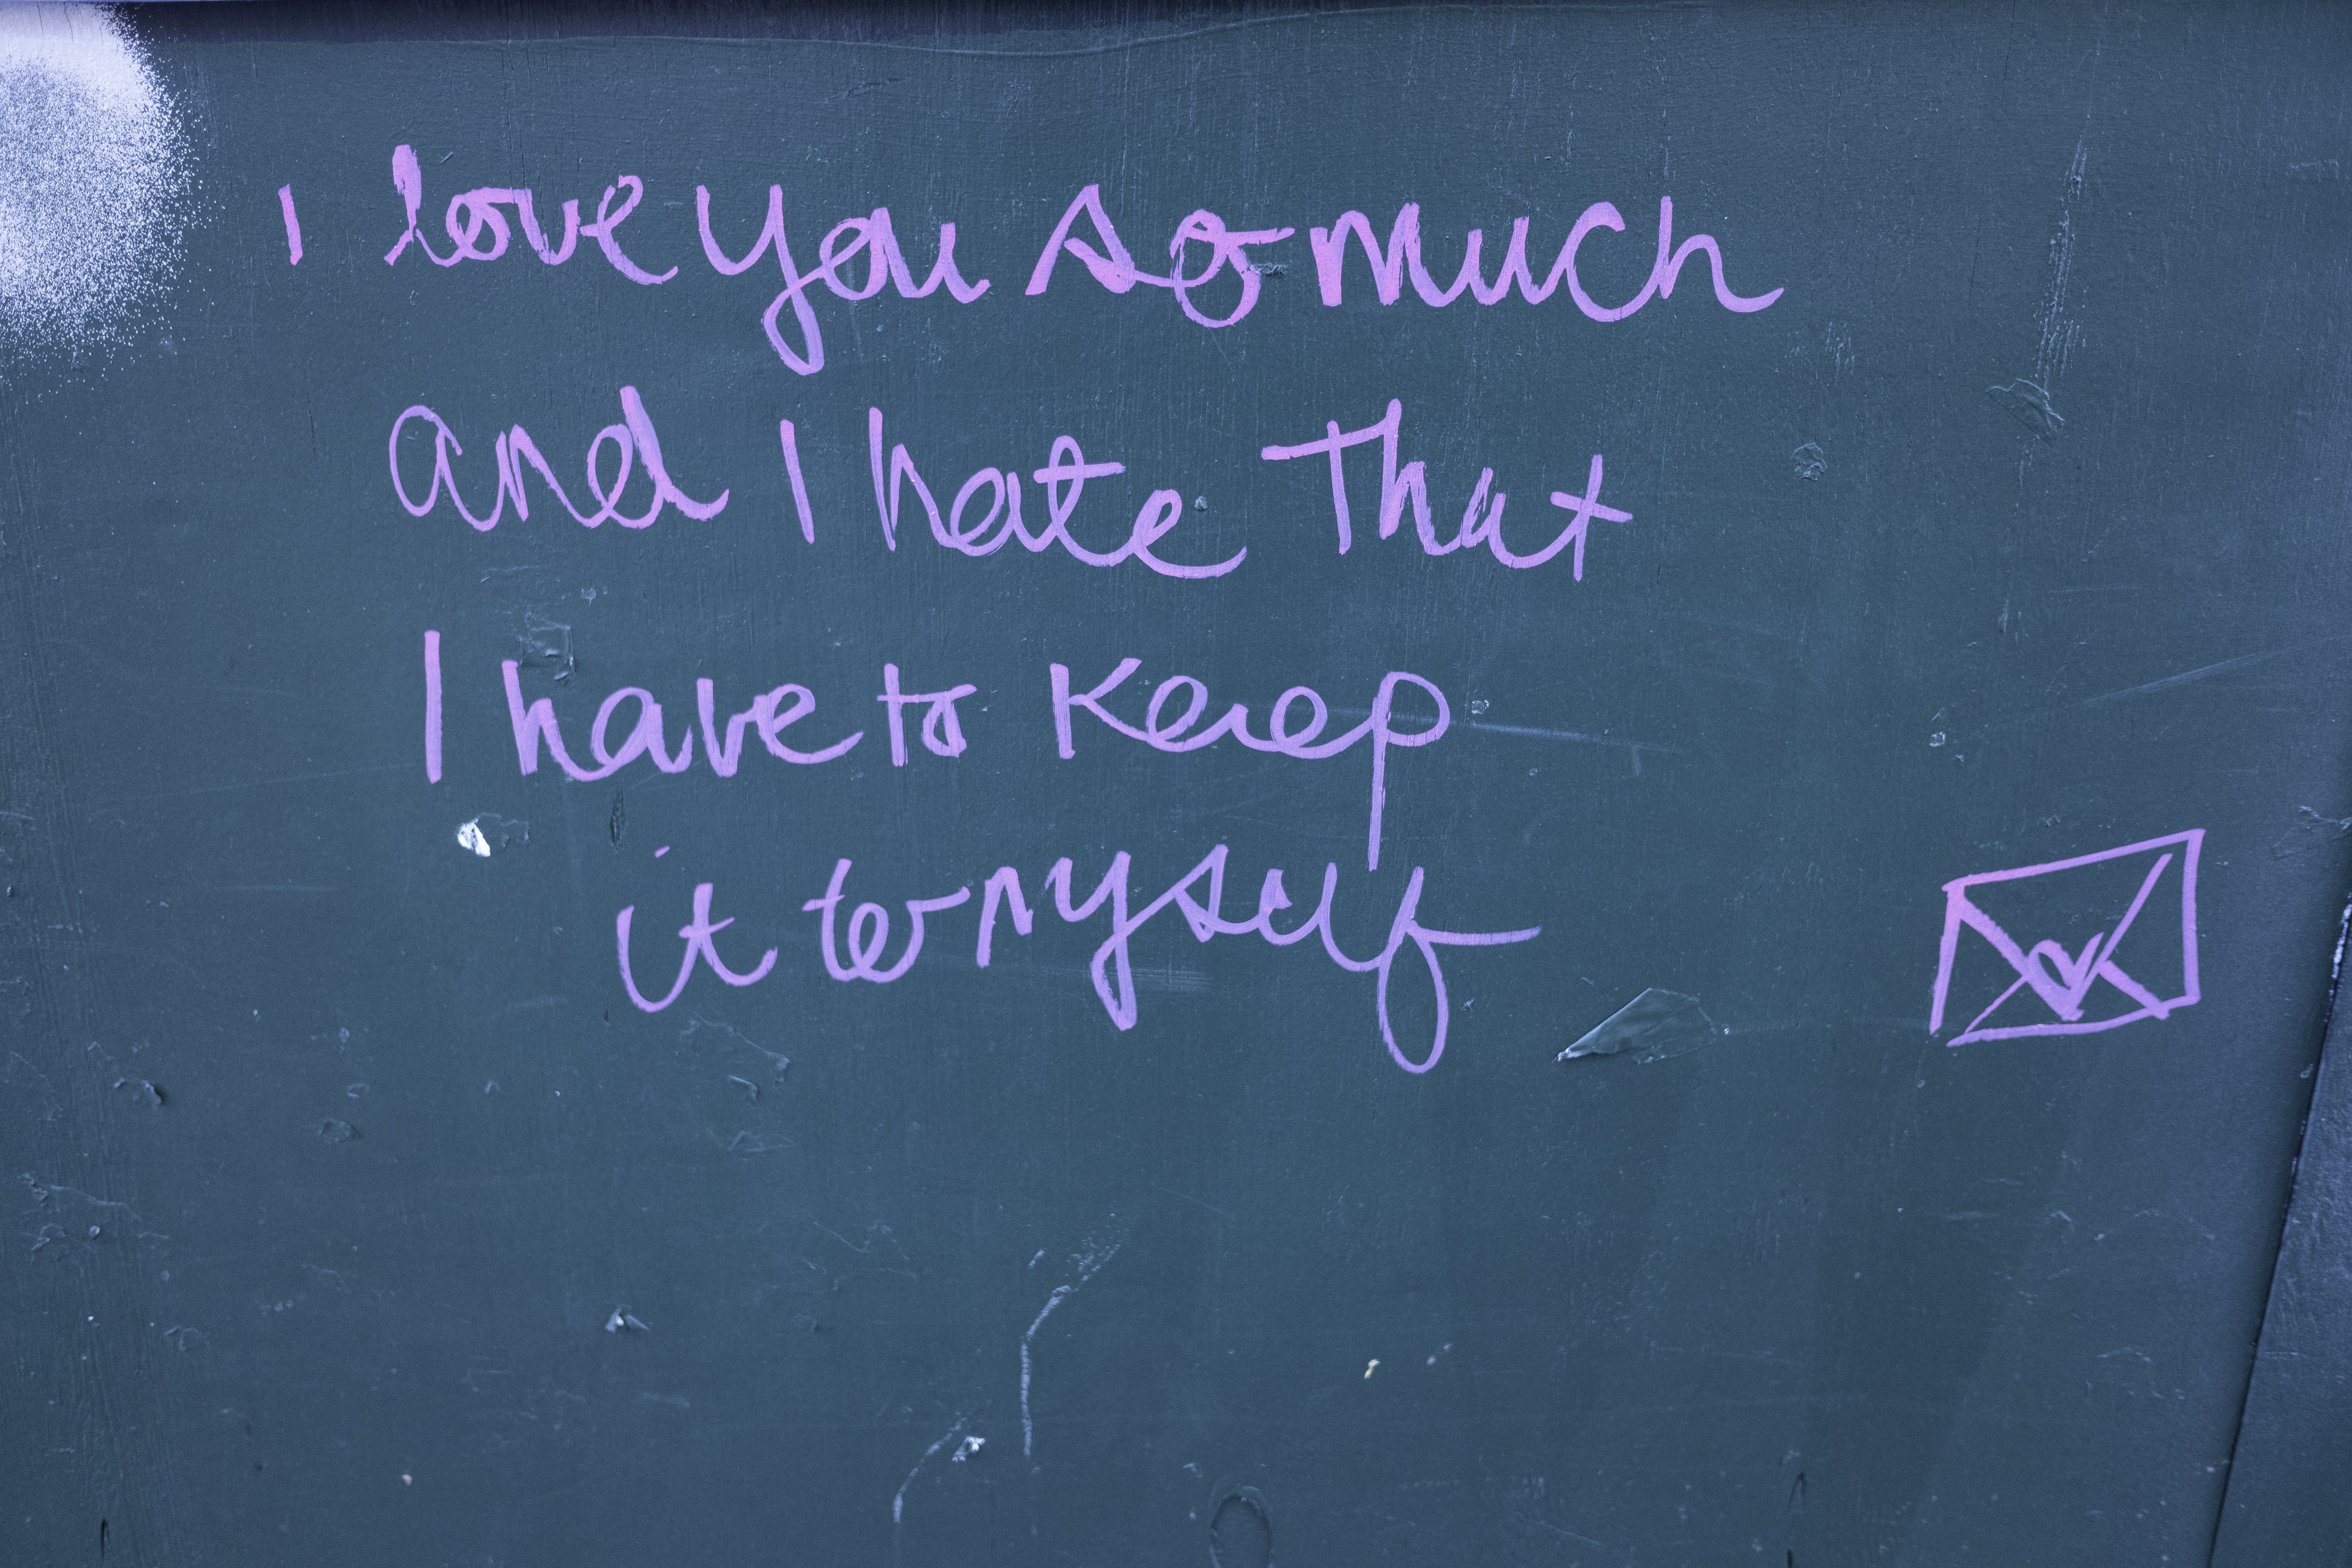 I love you so much
and I hate That
I have to Keep
it to myself